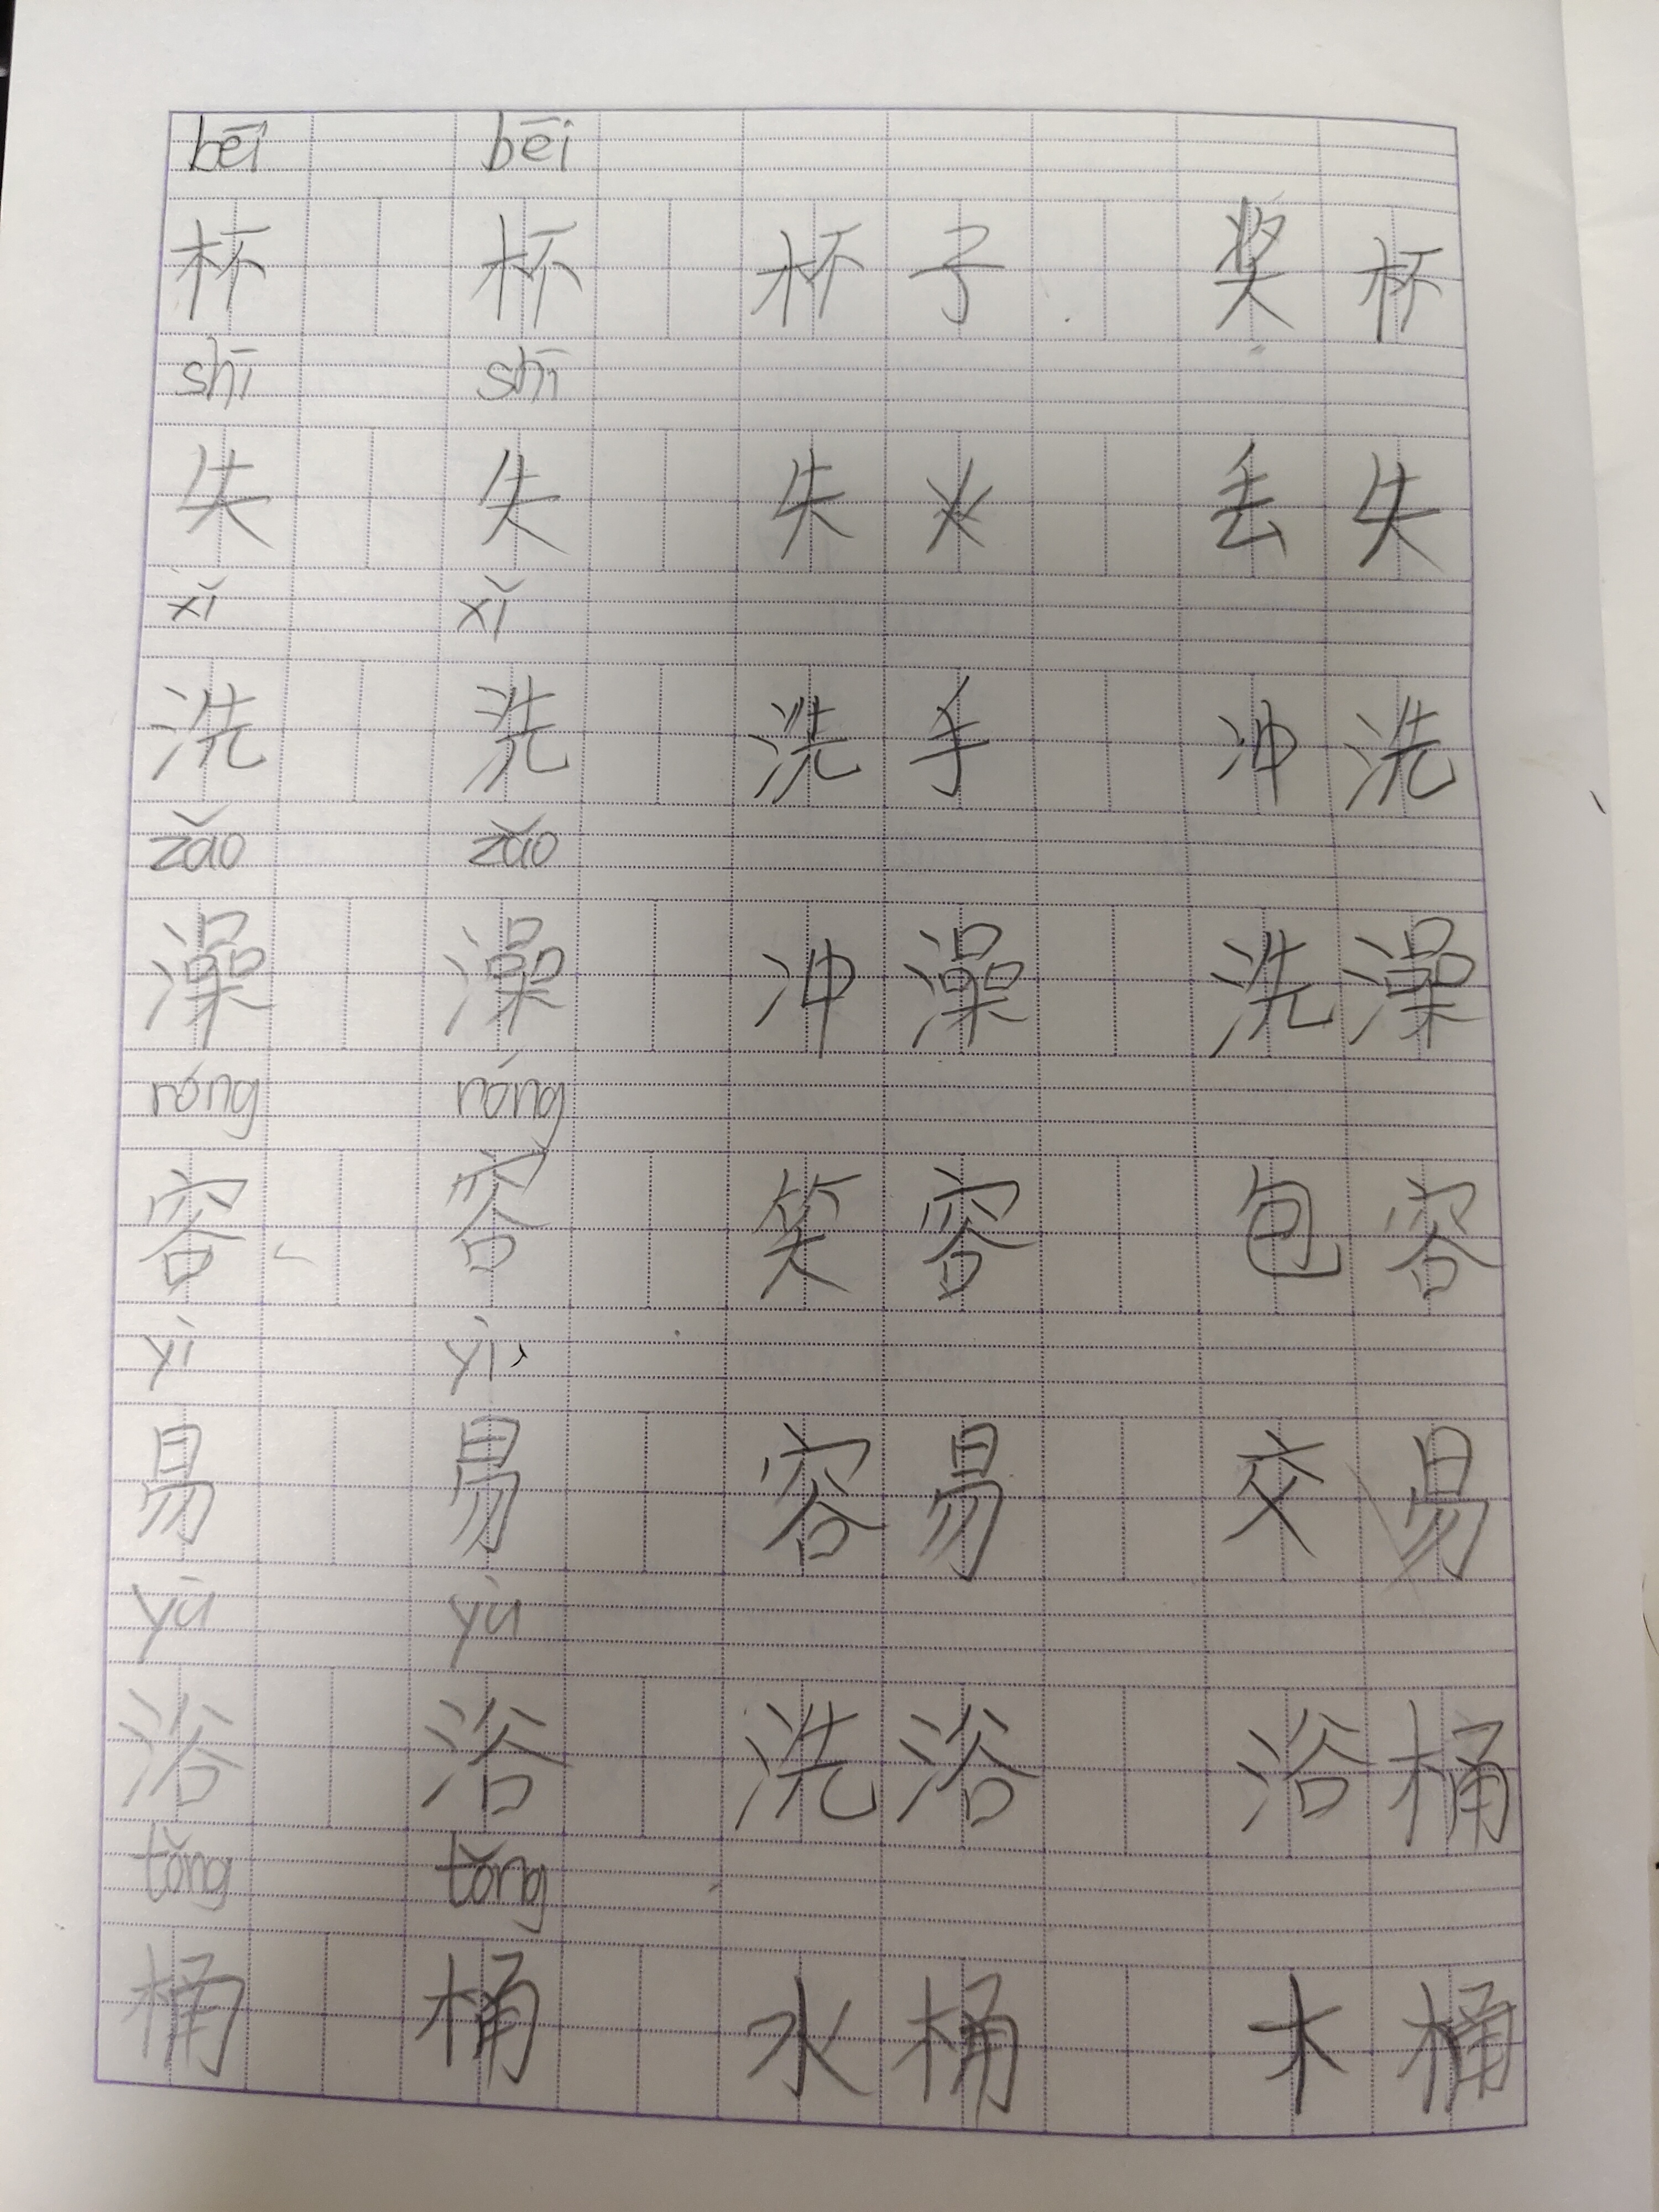 bēi bēi
杯 杯 杯子 奖杯
shī shī
失 失 失火 丢失
xǐ xǐ
洗 洗 洗手 冲洗
zǎo zǎo
澡 澡 冲澡 洗澡
róng róng
容 容 笑容 包容
yì yì
易 易 容易 交易
yù yù
浴 浴 洗浴 浴桶
tǒng tǒng
桶 桶 水桶 木桶